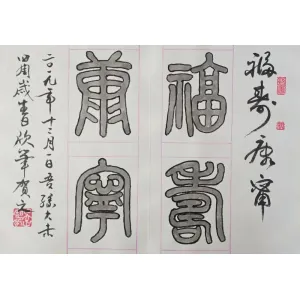 福寿康甯
福壽
康寧
二〇一九年十二月一日吾孫大
周歲欣筆賀之